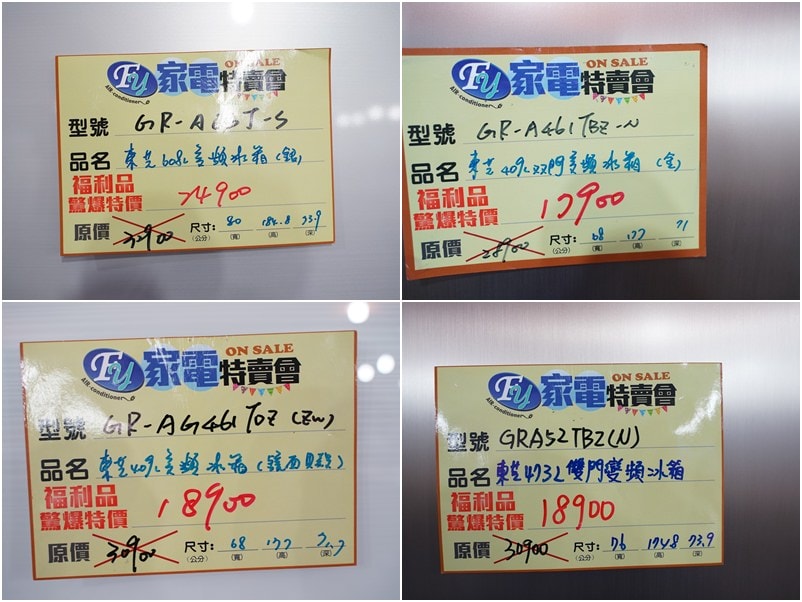 FU 家電特賣會 ON SALE
AIR-conditioner
型號 GR-A66J-S
品名 東芝608L變頻冰箱(銀)
福利品
驚爆特價 24900
原價 32900 尺寸: 80 184.8 73.9
(公分) (寬) (高) (深)
FU 家電特賣會 ON SALE
AIR-conditioner
型號 GR-A461TBZ-N
品名 東芝409L双門變頻冰箱(金)
福利品
驚爆特價 17900
原價 28900 尺寸: 68 177 71
(公分) (寬) (高) (深)
FU 家電特賣會 ON SALE
AIR-conditioner
型號 GR-AG461TDZ(ZW)
品名 東芝409L變頻冰箱(鏡面貝殼)
福利品
驚爆特價 18900
原價 30900 尺寸: 68 177
(公分) (寬) (高) (深)
FU 家電特賣會 ON SALE
AIR-conditioner
型號 GRA52TBZ(N)
品名 東芝473L雙門變頻冰箱
福利品
驚爆特價 18900
原價 30900 尺寸: 76 174.8 73.9
(公分) (寬) (高) (深)